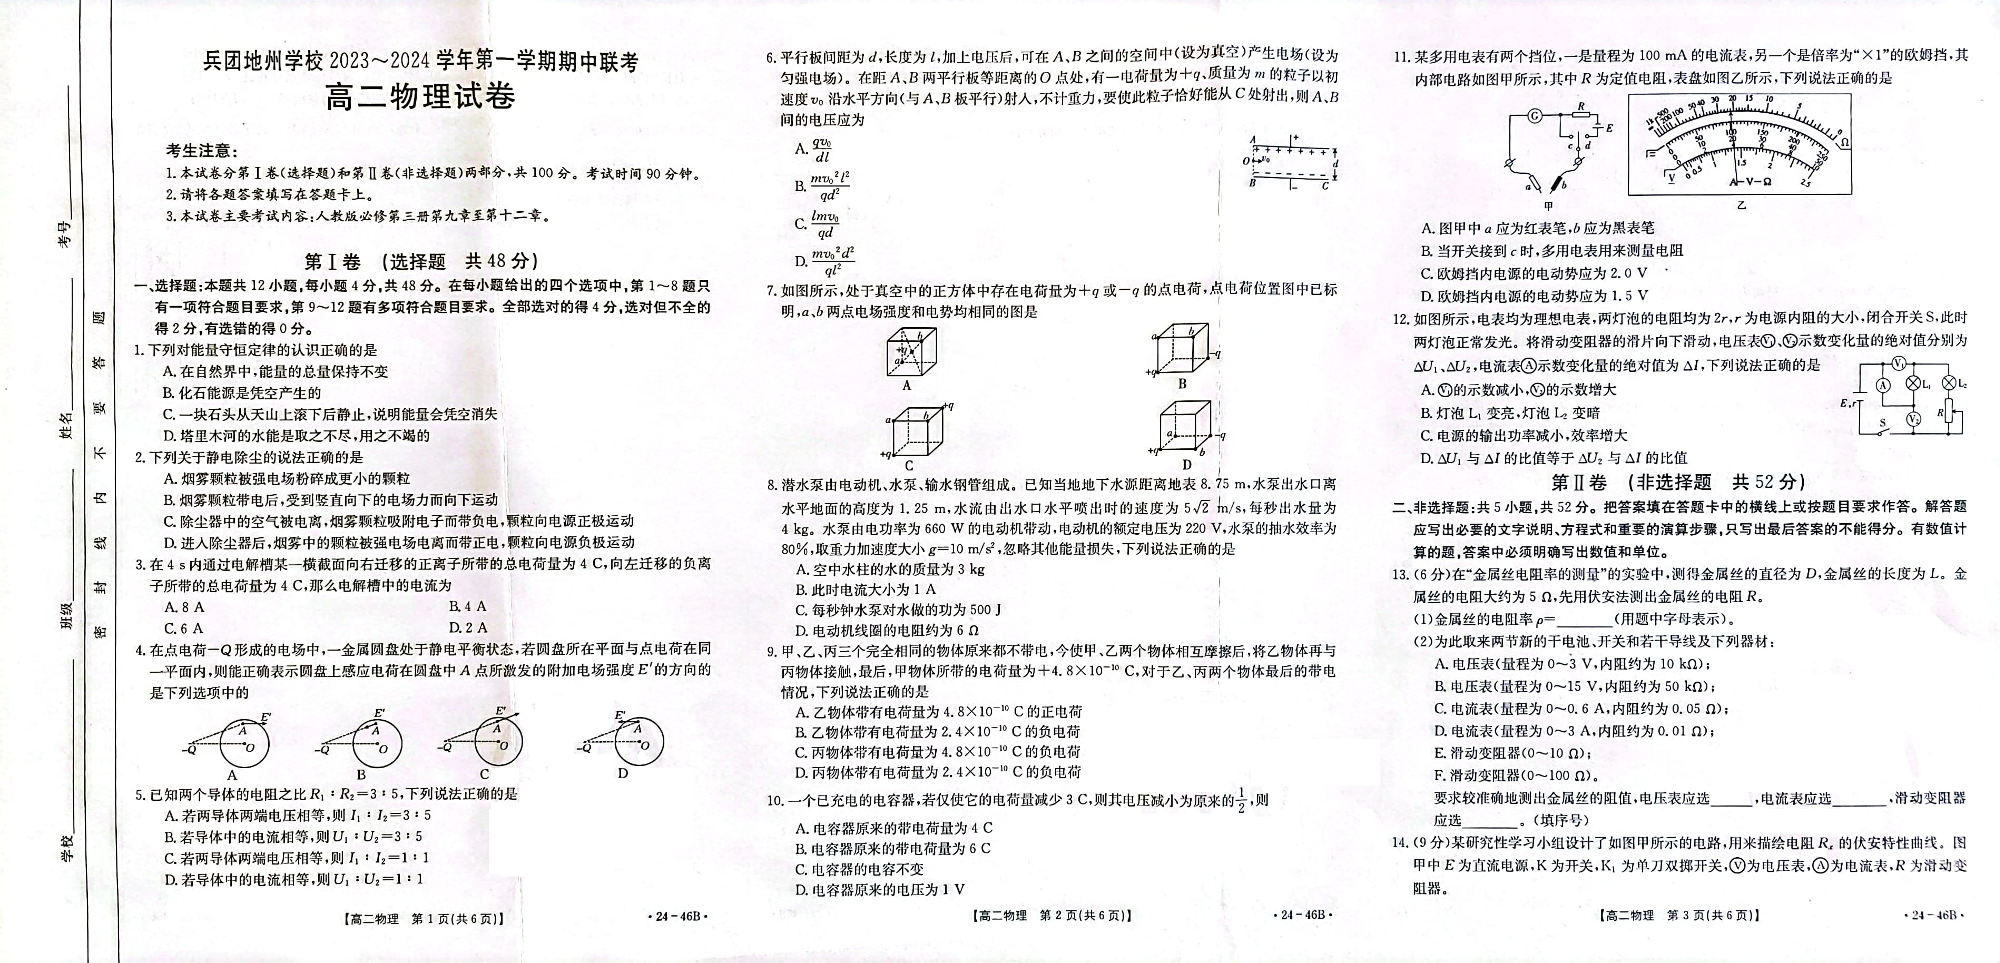 考号
姓名
班级
学校
密 封 线 内 不 要 答 题
兵团地州学校 2023～2024 学年第一学期期中联考
高二物理试卷
考生注意:
1.本试卷分第Ⅰ卷(选择题)和第Ⅱ卷(非选择题)两部分,共 100 分。考试时间 90 分钟。
2.请将各题答案填写在答题卡上。
3.本试卷主要考试内容:人教版必修第三册第九章至第十二章。
第Ⅰ卷 (选择题 共 48 分)
一、选择题:本题共 12 小题,每小题 4 分,共 48 分。在每小题给出的四个选项中,第 1～8 题只
有一项符合题目要求,第 9～12 题有多项符合题目要求。全部选对的得 4 分,选对但不全的
得 2 分,有选错的得 0 分。
1.下列对能量守恒定律的认识正确的是
A.在自然界中,能量的总量保持不变
B.化石能源是凭空产生的
C.一块石头从天山上滚下后静止,说明能量会凭空消失
D.塔里木河的水能是取之不尽,用之不竭的
2.下列关于静电除尘的说法正确的是
A.烟雾颗粒被强电场粉碎成更小的颗粒
B.烟雾颗粒带电后,受到竖直向下的电场力而向下运动
C.除尘器中的空气被电离,烟雾颗粒吸附电子而带负电,颗粒向电源正极运动
D.进入除尘器后,烟雾中的颗粒被强电场电离而带正电,颗粒向电源负极运动
3.在 4 s 内通过电解槽某一横截面向右迁移的正离子所带的总电荷量为 4 C,向左迁移的负离
子所带的总电荷量为 4 C,那么电解槽中的电流为
A.8 A B.4 A
C.6 A D.2 A
4.在点电荷－Q 形成的电场中,一金属圆盘处于静电平衡状态,若圆盘所在平面与点电荷在同
一平面内,则能正确表示圆盘上感应电荷在圆盘中 A 点所激发的附加电场强度 E′的方向的
是下列选项中的
E′ A -Q O A
E′ A -Q O B
E′ A -Q O C
E′ A -Q O D
5.已知两个导体的电阻之比 R₁∶R₂=3∶5,下列说法正确的是
A.若两导体两端电压相等,则 I₁∶I₂=3∶5
B.若导体中的电流相等,则 U₁∶U₂=3∶5
C.若两导体两端电压相等,则 I₁∶I₂=1∶1
D.若导体中的电流相等,则 U₁∶U₂=1∶1
【高二物理 第 1 页(共 6 页)】 ·24－46B·
6.平行板间距为 d,长度为 l,加上电压后,可在 A、B 之间的空间中(设为真空)产生电场(设为
匀强电场)。在距 A、B 两平行板等距离的 O 点处,有一电荷量为+q、质量为 m 的粒子以初
速度 v₀ 沿水平方向(与 A、B 板平行)射入,不计重力,要使此粒子恰好能从 C 处射出,则 A、B
间的电压应为
A. qv₀/dl
B. mv₀²l²/qd²
C. lmv₀/qd
D. mv₀²d²/ql²
A + O v₀ d B － C
7.如图所示,处于真空中的正方体中存在电荷量为+q 或－q 的点电荷,点电荷位置图中已标
明,a、b 两点电场强度和电势均相同的图是
b +q a A
a b -q +q B
+q a b +q C
a -q +q b D
8.潜水泵由电动机、水泵、输水钢管组成。已知当地地下水源距离地表 8.75 m,水泵出水口离
水平地面的高度为 1.25 m,水流由出水口水平喷出时的速度为 5√2 m/s,每秒出水量为
4 kg。水泵由电功率为 660 W 的电动机带动,电动机的额定电压为 220 V,水泵的抽水效率为
80%,取重力加速度大小 g=10 m/s²,忽略其他能量损失,下列说法正确的是
A.空中水柱的水的质量为 3 kg
B.此时电流大小为 1 A
C.每秒钟水泵对水做的功为 500 J
D.电动机线圈的电阻约为 6 Ω
9.甲、乙、丙三个完全相同的物体原来都不带电,今使甲、乙两个物体相互摩擦后,将乙物体再与
丙物体接触,最后,甲物体所带的电荷量为+4.8×10⁻¹⁰ C,对于乙、丙两个物体最后的带电
情况,下列说法正确的是
A.乙物体带有电荷量为 4.8×10⁻¹⁰ C 的正电荷
B.乙物体带有电荷量为 2.4×10⁻¹⁰ C 的负电荷
C.丙物体带有电荷量为 4.8×10⁻¹⁰ C 的负电荷
D.丙物体带有电荷量为 2.4×10⁻¹⁰ C 的负电荷
10.一个已充电的电容器,若仅使它的电荷量减少 3 C,则其电压减小为原来的1/2,则
A.电容器原来的带电荷量为 4 C
B.电容器原来的带电荷量为 6 C
C.电容器的电容不变
D.电容器原来的电压为 1 V
【高二物理 第 2 页(共 6 页)】 ·24－46B·
11.某多用电表有两个挡位,一是量程为 100 mA 的电流表,另一个是倍率为“×1”的欧姆挡,其
内部电路如图甲所示,其中 R 为定值电阻,表盘如图乙所示,下列说法正确的是
G R E c d a b 甲
1k 500 200 100 50 40 30 20 15 10 5 0 Ω
0 50 100 150 200 250
0 0.5 1 1.5 2 2.5
V A－V－Ω
乙
A.图甲中 a 应为红表笔,b 应为黑表笔
B.当开关接到 c 时,多用电表用来测量电阻
C.欧姆挡内电源的电动势应为 2.0 V
D.欧姆挡内电源的电动势应为 1.5 V
12.如图所示,电表均为理想电表,两灯泡的电阻均为 2r,r 为电源内阻的大小,闭合开关 S,此时
两灯泡正常发光。将滑动变阻器的滑片向下滑动,电压表V₁、V₂示数变化量的绝对值分别为
ΔU₁、ΔU₂,电流表A示数变化量的绝对值为 ΔI,下列说法正确的是
A.V₁的示数减小,V₂的示数增大
B.灯泡 L₁ 变亮,灯泡 L₂ 变暗
C.电源的输出功率减小,效率增大
D.ΔU₁ 与 ΔI 的比值等于 ΔU₂ 与 ΔI 的比值
V₁ A L₁ L₂ E,r V₂ R S
第Ⅱ卷 (非选择题 共 52 分)
二、非选择题:共 5 小题,共 52 分。把答案填在答题卡中的横线上或按题目要求作答。解答题
应写出必要的文字说明、方程式和重要的演算步骤,只写出最后答案的不能得分。有数值计
算的题,答案中必须明确写出数值和单位。
13.(6 分)在“金属丝电阻率的测量”的实验中,测得金属丝的直径为 D,金属丝的长度为 L。金
属丝的电阻大约为 5 Ω,先用伏安法测出金属丝的电阻 R。
(1)金属丝的电阻率 ρ=________(用题中字母表示)。
(2)为此取来两节新的干电池、开关和若干导线及下列器材:
A.电压表(量程为 0～3 V,内阻约为 10 kΩ);
B.电压表(量程为 0～15 V,内阻约为 50 kΩ);
C.电流表(量程为 0～0.6 A,内阻约为 0.05 Ω);
D.电流表(量程为 0～3 A,内阻约为 0.01 Ω);
E.滑动变阻器(0～10 Ω);
F.滑动变阻器(0～100 Ω)。
要求较准确地测出金属丝的阻值,电压表应选______,电流表应选________,滑动变阻器
应选________。(填序号)
14.(9 分)某研究性学习小组设计了如图甲所示的电路,用来描绘电阻 Rₓ 的伏安特性曲线。图
甲中 E 为直流电源,K 为开关,K₁ 为单刀双掷开关,V为电压表,A为电流表,R 为滑动变
阻器。
【高二物理 第 3 页(共 6 页)】 ·24－46B·